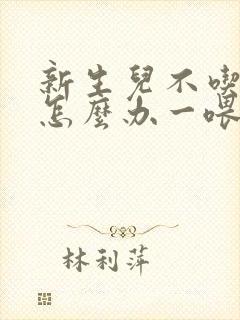 新生兒不喫
怎麼办一喂
林利萍